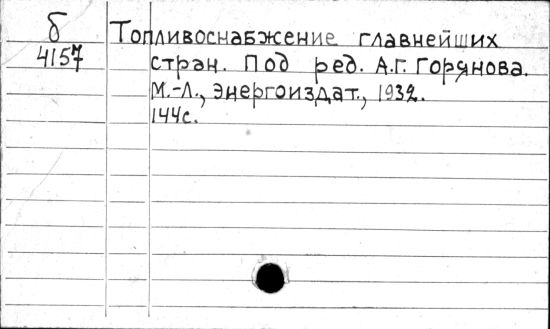 б
4157
Топливоснабжение главнейших
стран. Под ред. А.Г. Горянова.
М.-Л., Энергоиздат., 1932.
144с.